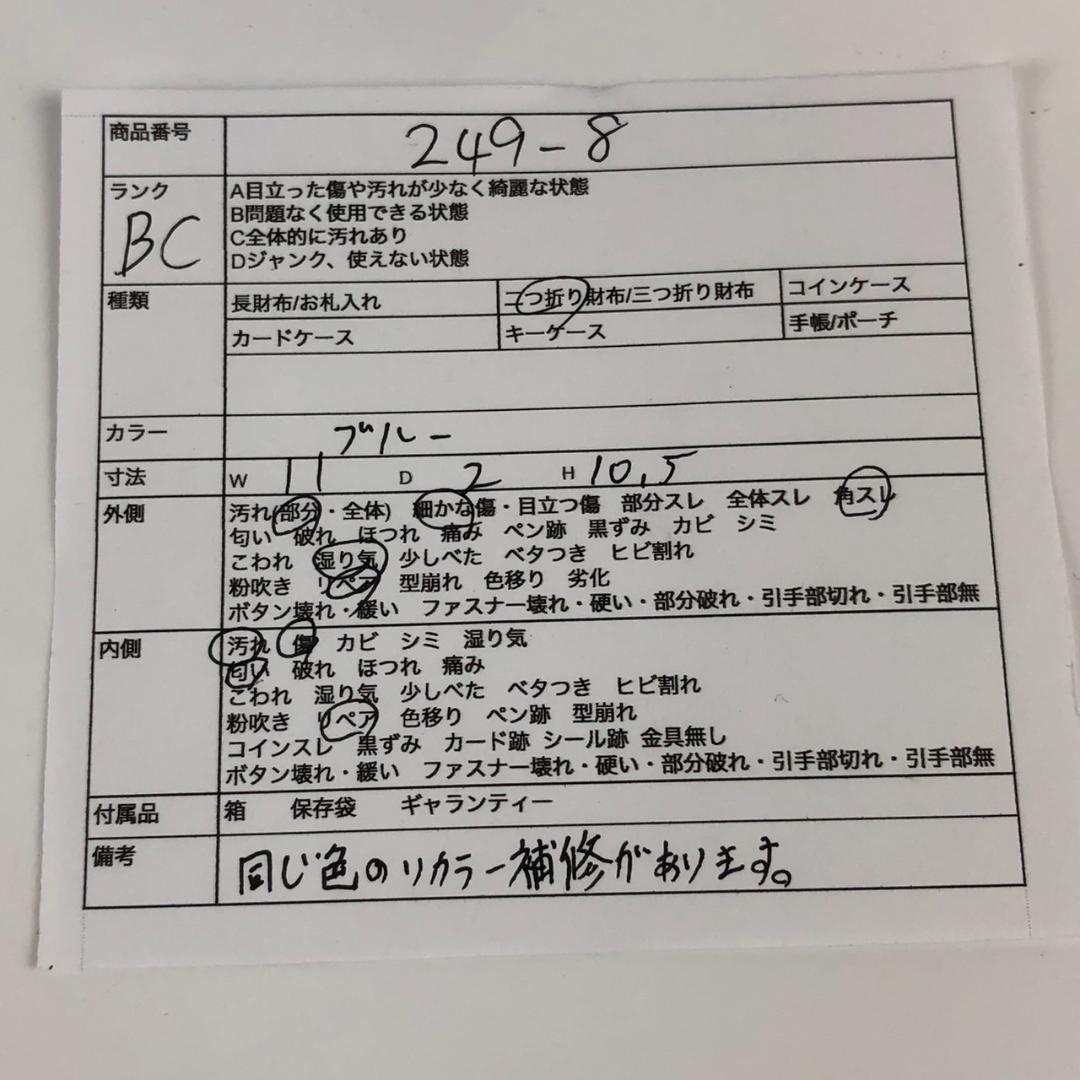 商品番号 249-8
ランク BC
A目立った傷や汚れが少なく綺麗な状態
B問題なく使用できる状態
C全体的に汚れあり
Dジャンク、使えない状態
種類 長財布/お札入れ 二つ折り財布/三つ折り財布 コインケース
カードケース キーケース 手帳/ポーチ
カラー ブルー
寸法 W 11 D 2 H 10.5
外側 汚れ(部分・全体) 細かな傷・目立つ傷 部分スレ 全体スレ 角スレ
匂い 破れ ほつれ 痛み ペン跡 黒ずみ カビ シミ
こわれ 湿り気 少しべた ベタつき ヒビ割れ
粉吹き リペア 型崩れ 色移り 劣化
ボタン壊れ・緩い ファスナー壊れ・硬い・部分破れ・引手部切れ・引手部無
内側 汚れ 傷 カビ シミ 湿り気
匂い 破れ ほつれ 痛み
こわれ 湿り気 少しべた ベタつき ヒビ割れ
粉吹き リペア 色移り ペン跡 型崩れ
コインスレ 黒ずみ カード跡 シール跡 金具無し
ボタン壊れ・緩い ファスナー壊れ・硬い・部分破れ・引手部切れ・引手部無
付属品 箱 保存袋 ギャランティー
備考 同じ色のリカラー補修があります。